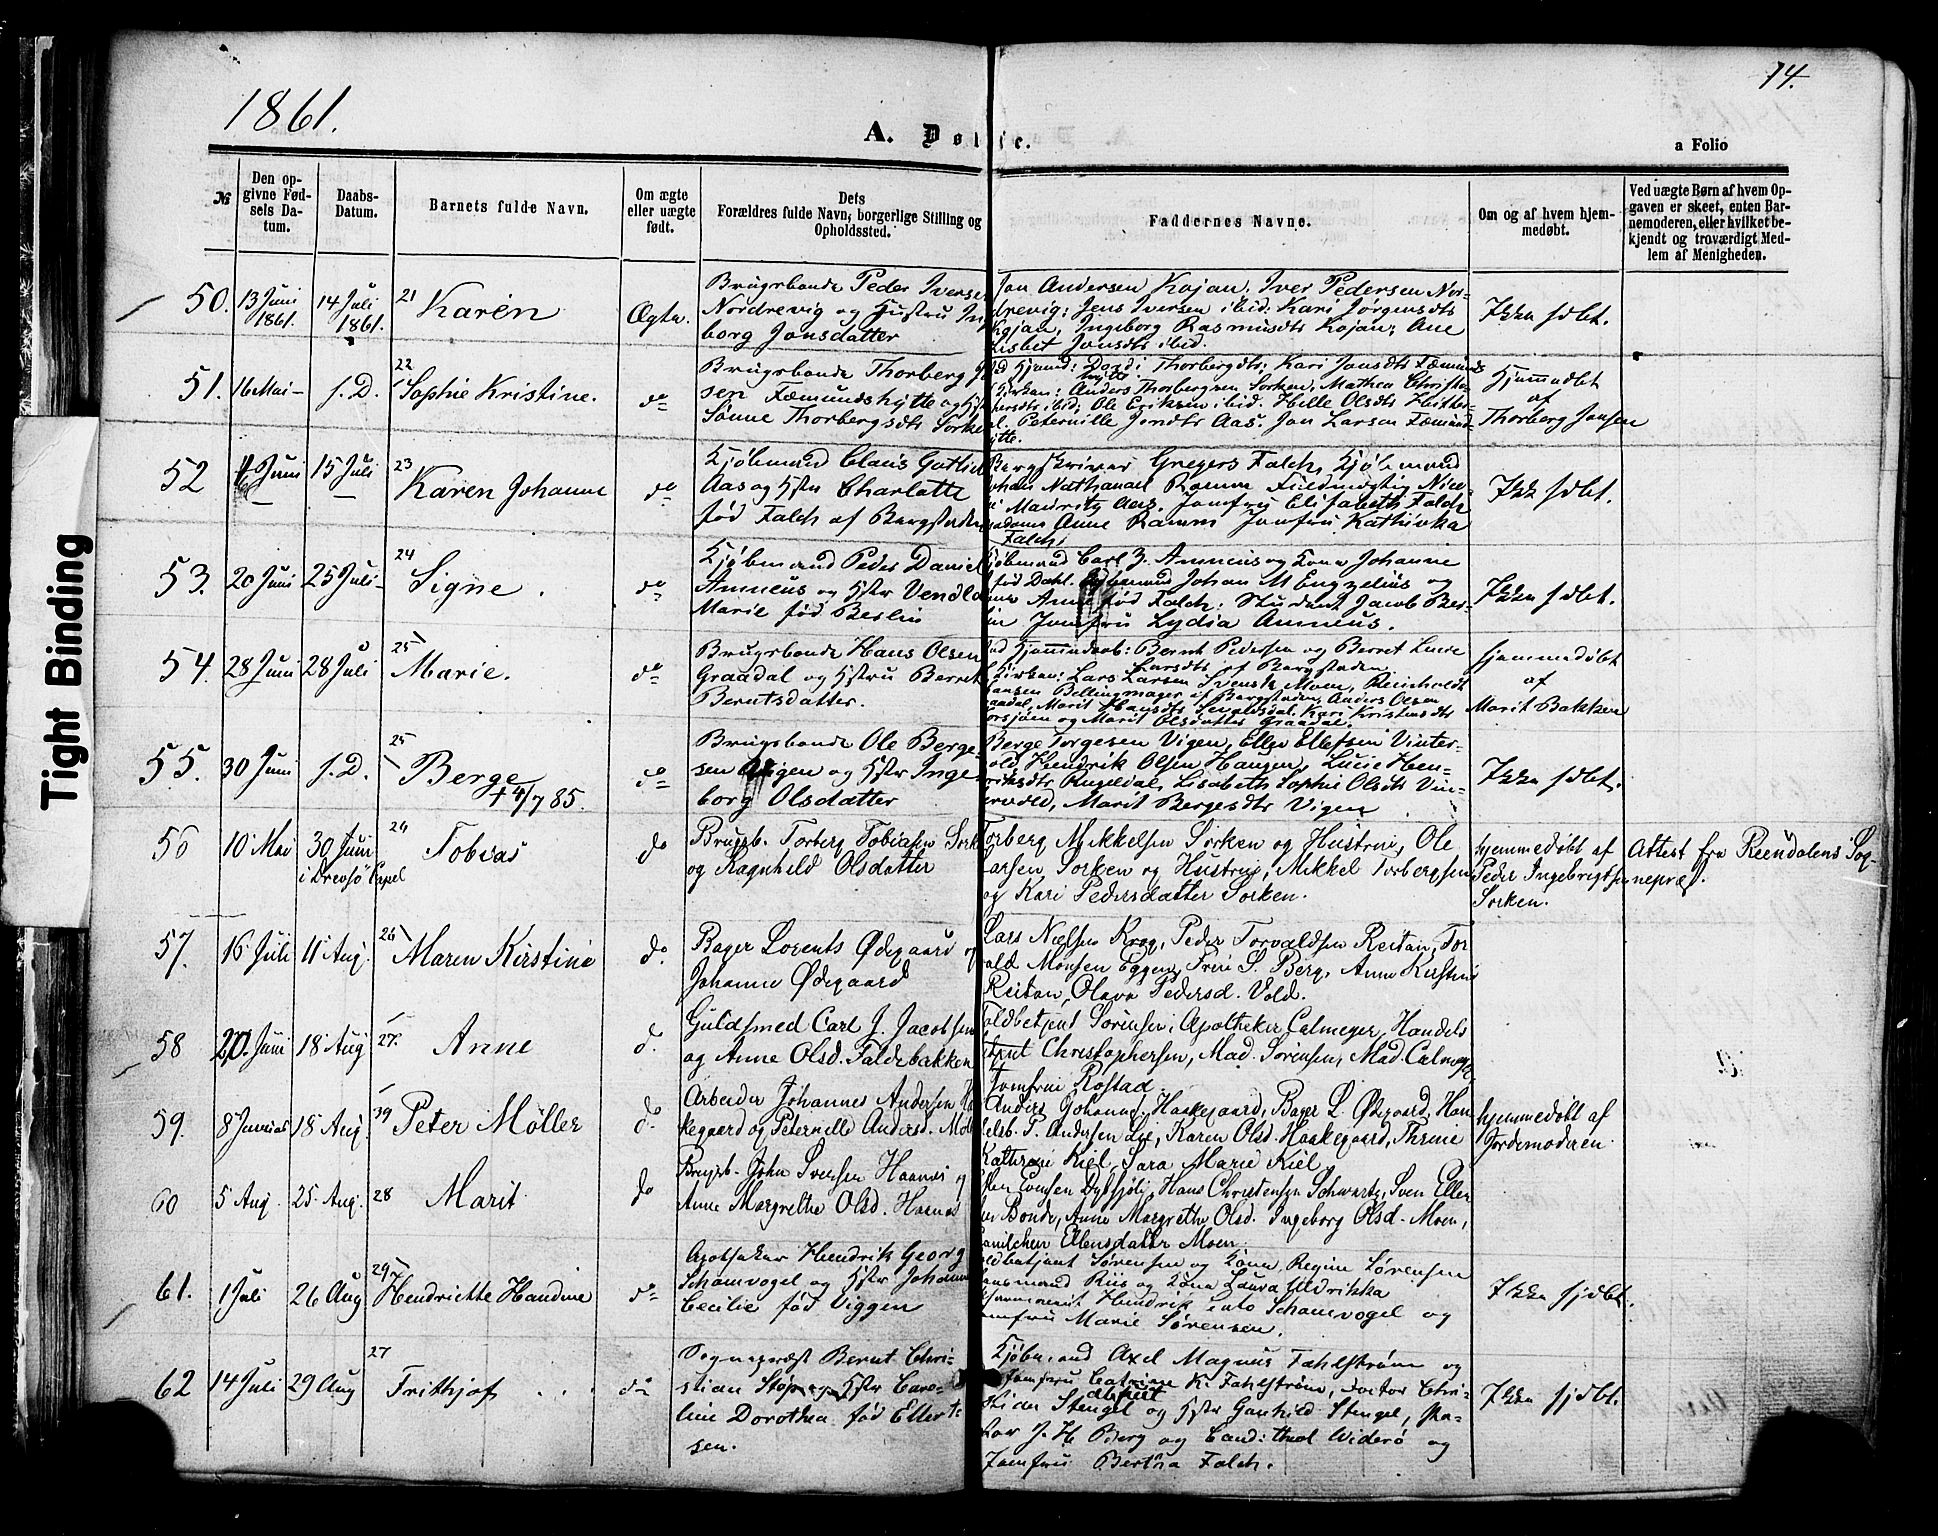 1861.
14.
A. Døbte.
a Folio
Tight Binding
№
Den opgivne Fødsels Datum.
Daabs-Datum.
Barnets fulde Navn.
Om ægte eller uægte født.
Dets Forældres fulde Navn, borgerlige Stilling og Opholdssted.
Faddernes Navne.
Om og af hvem hjemmedøbt.
Ved uægte Børn af hvem Opgaven er skeet, enten Barnemoderen, eller hvilket bekjendt og troværdigt Medlem af Menigheden.
50. 13 Juni 1861. 14 Juli 1861. 21 Karen Ægte.
Brugsbonde Peder Iverse
Nordrevig og Hustru Ing
borg Jonsdatter
Jon Andersen Kojan, Iver Pedersen Nor-
drevig; Jens Iversen ibid. Kari Jørgensdts
Kojan, Ingeborg Rasmusdts Kojan; Ane
Lisbet Jonsdts ibid.
Ikke hdbt.
51. 16 Mai - s. D. 22 Sophie Kristine. do
Brugsbonde Thorberg J
sen Fæmundshytte og H
Sønne Thorbergsdts Sorke
Thorbergdts; Kari Jonsdts Fæmunds
hytte
Kirken: Anders Thorbergsen Sorken, Mathea Christo
ibid; Ole Eriksen ibid. Helle Olsdts Hitter
Peternille Aas. Jon Larsen Fæmund
ytte.
Hjemmedbt
af
Thorberg Jonsen
52 Juni 15 Juli 23 Karen Johanne do
Kjøbmand Claus Gotlieb
Aas og Hstr Charlotte
fød Falch af Bergstaden
Bergskriver Gregers Falch, Kjøbmand
Johan Nathanael Ramm Fuldmægtig Nico
Mauritz Aas. Jomfru Elisabeth Falch
Madame Anne Ramm Jomfru Kathinka
Falch;
Ikke hdbt.
53. 20 Juni 25 Juli - 24 Signe. do
Kjøbmand Peder Daniel
Amneus og Hstr Vendla
Marie fød Beslin
Kjøbmand Carl Z. Amneus og Kone Johanne
fød Dahl. Kjøbmand Johan M Engzelius og
Anne fød Falch; Student Jacob Bes-
lin Jomfru Lydia Amneus.
Ikke hdbt.
54. 28 Juni 28 Juli 25 Marie. do
Brugsbonde Hans Olsen
Graadal og Hstru Berret
Berntsdatter.
Ved Hjemmedaab: Bernt Pedersen og Berret Lucie
Larsdts af Bergstaden
Kirken: Lars Larsen Svensk Moen, Reinholdt
Hansen Bellingmager af Bergstaden, Anders Olsen
aadal, Marit Hansdts Kari Kristensdts
orsjøen og Marit Olsdatter Graadal.
Hjemmedøbt
af
Marit Bakken
55. 30 Juni s. D. 25 Berge do
+ 4/7 85.
Brugsbonde Ole Berge-
sen Vigen og Hstr Inge-
borg Olsdatter
Berge Torgesen Vigen, Ellev Ellefsen Vinter-
vold, Hendrik Olsen Haugen, Lucie Hen-
riksdtr Rugeldal, Lisabeth Sophie Olsdts Vin-
tervold, Marit Bergesdtr Vigen
Ikke hdbt.
56 10 Mai 30 Juni i Drevsø Capel 26 Tobias do
Brugsb. Torberg Tobiasen Sork
og Ragnhild Olsdatter
Torberg Mikkelsen Sorken og Hustru, Ole
Larsen Sorken og Hustru, Mikkel Torbergsen
og Kari Pedersdatter Sorken.
hjemmedøbt af
Peder Ingebrigtsen
Sorken.
Attest fra Reendalens Sog-
nepræst.
57. 16 Juli 11 Aug. 26 Maren Kirstine do.
Bager Lorents Ødegaard og
Johanne Ødegaard
Lars Nielsen Krog, Peder Torvaldsen Reitan, Tor
vald Monsen Eggen, Fru S. Berg, Anne Kirstine
Reitan, Olava Pedersd. Vold.
58 20. Juni 18 Aug 27. Anne d.
Guldsmed Carl J. Jacobsen
og Anne Olsd. Faldebakken
Toldbetjent Sørensen, Apotheker Calmeyer, Handels
Christophersen, Mad. Sørensen, Mad. Calmeye
Jomfru Rostad.
59. 8 Junius 18 Aug. 39 Peter Møller do.
Arbeider Johannes Andersen Ha
kegaard og Peternelle Andersd. Mol
Anders Johannes. Haakegaard, Bager L. Ødegaard, Han
delsb. P. Andersen Lie, Karen Olsd. Haakegaard, Thrine
Kathrine Kiel, Sara Marie Kiel.
hjemmedøbt af
Jordemoderen
60 5 Aug. 25 Aug. 28 Marit do
Brugsb. John Svensen Haanæs og
Anne Margrethe Olsd. Haanæs
Evensen Dybsjøli, Hans Christensen Schwartz, Sven Ellen
Bonde, Anne Margrethe Olsd. Ingeborg Olsd. Moen,
Ellensdatter Moen.
61. 1 Juli 26 Aug 29 Hendriette Handine do
Apotheker Hendrik Georg
Schamvogel og Hstr Johanne
Cecilie fød Viggen
Toldbetjent Sørensen og Kone Regine Sørensen
Lensmand Riis og Kone Laura Uldrikka
Hendrik Schamvogel og
Jomfru Marie Sørensen.
Ikke hjdbt.
62 14 Juli 29 Aug 27 Frithjof . . . do
Sognepræst Bernt Chri-
stian Støp og Hstr Caro-
line Dorothea fød Ellert-
sen.
Kjøbmand Axel Magnus Fahlstrøm og
Jomfru Catrine K. Fahlstrøm, Doctor Chri-
stider Stengel og Hstr Gonhild Stengel, Pa-
stor J. H Berg og Cand: theol Widerø og
Jomfru Bertha Falch.
Ikke hjdbt.